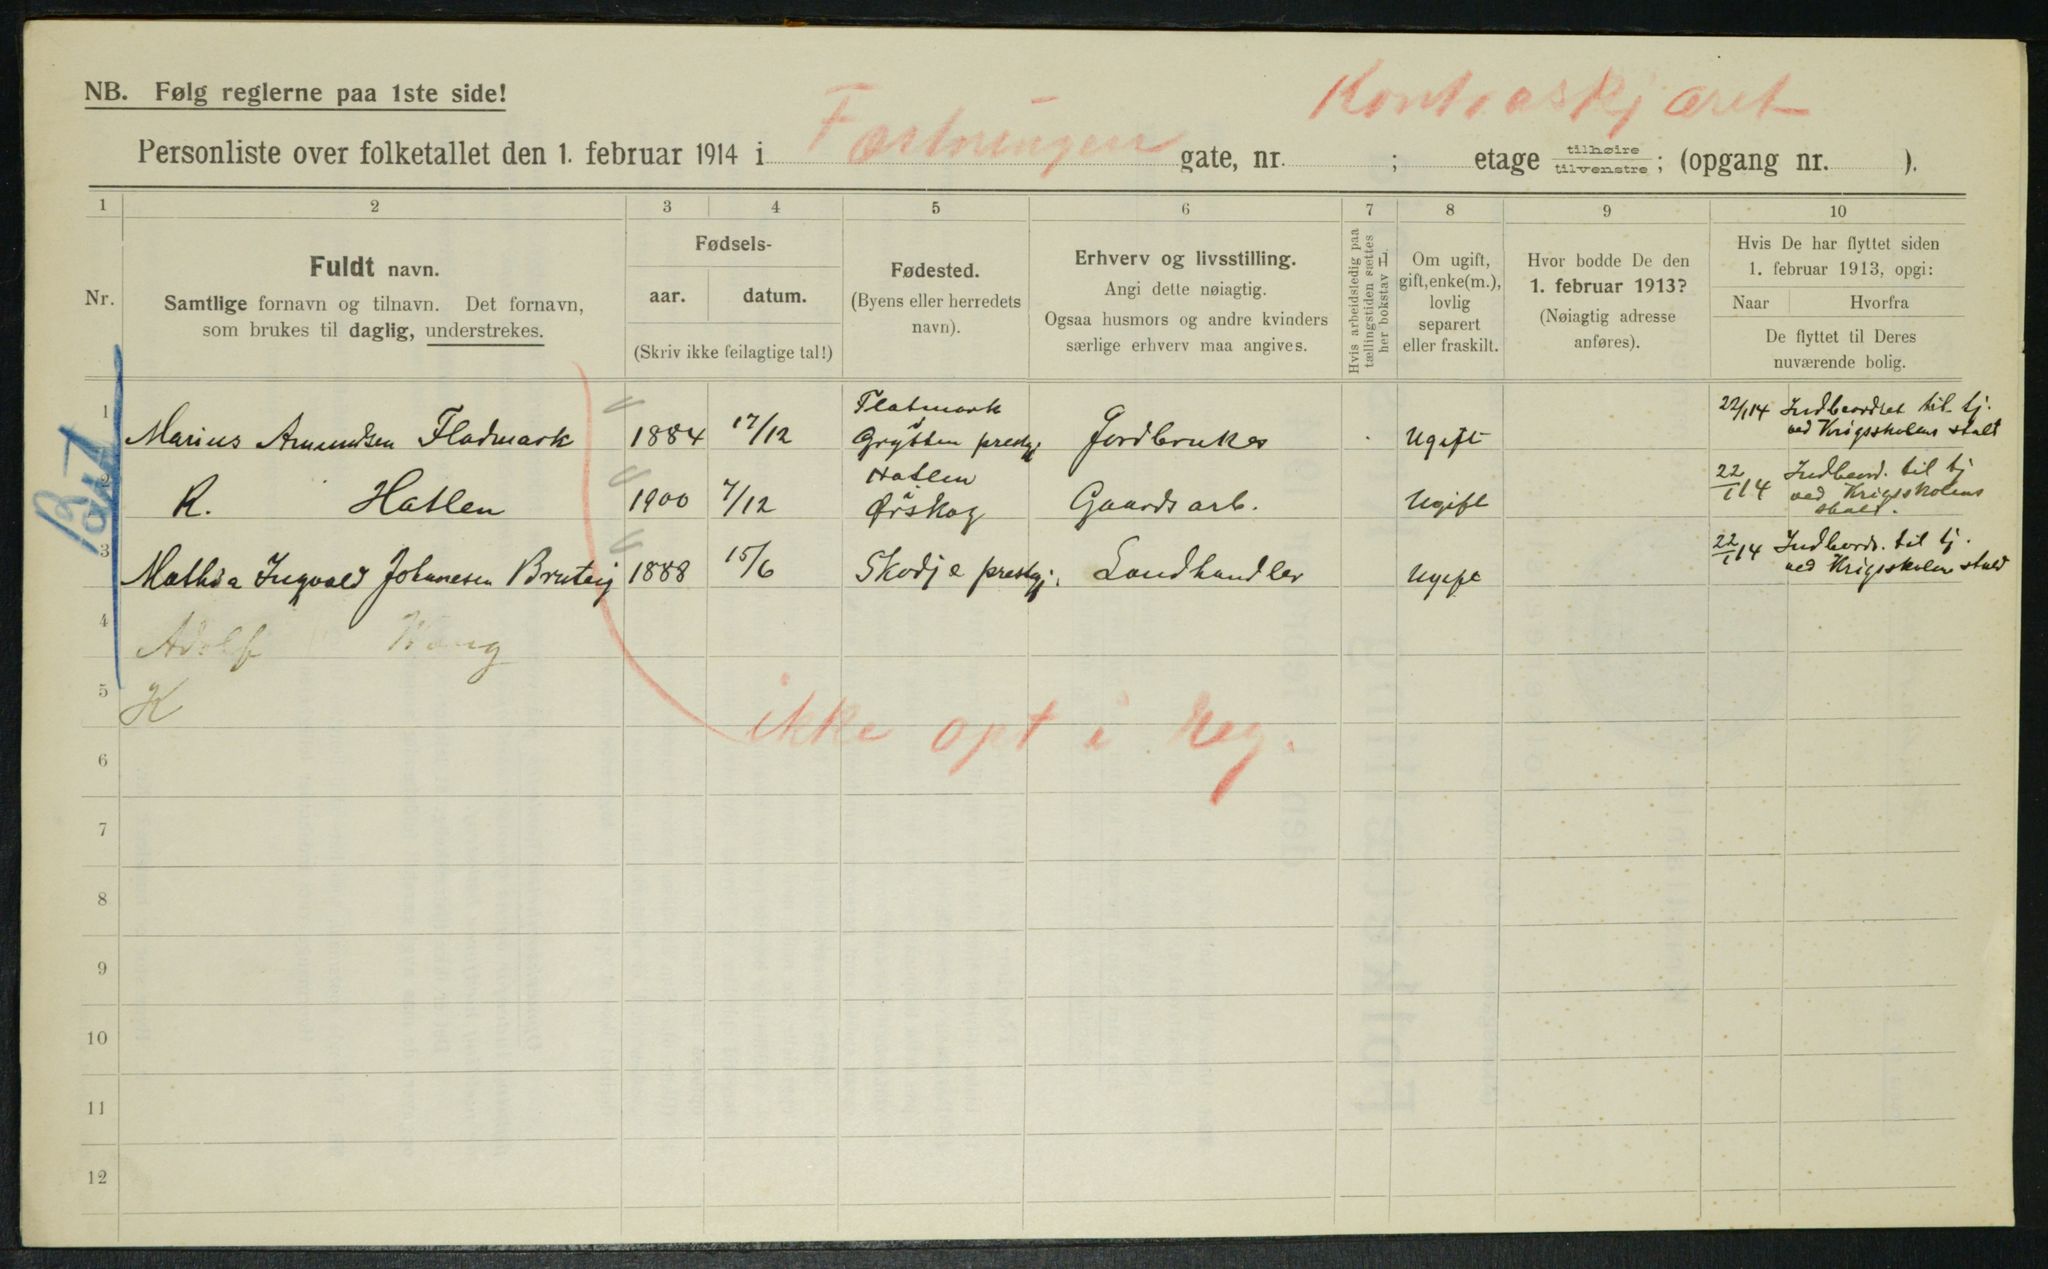 Kontraskjæret
NB. Følg reglerne paa 1ste side!
Personliste over folketallet den 1. februar 1914 i Fæstningen gate, nr. ; etage tilhøire/tilvenstre; (opgang nr. ).
1 2 3 4 5 6 7 8 9 10
Nr.
Fuldt navn.
Samtlige fornavn og tilnavn. Det fornavn,
som brukes til daglig, understrekes.
Fødsels-
aar. datum.
(Skriv ikke feilagtige tal!)
Fødested.
(Byens eller herredets
navn).
Erhverv og livsstilling.
Angi dette nøiagtig.
Ogsaa husmors og andre kvinders
særlige erhverv maa angives.
Hvis arbeidsledig paa
tællingstiden sættes
her bokstav L.
Om ugift,
gift, enke(m.),
lovlig
separert
eller fraskilt.
Hvor bodde De den
1. februar 1913?
(Nøiagtig adresse
anføres).
Hvis De har flyttet siden
1. februar 1913, opgi:
Naar Hvorfra
De flyttet til Deres
nuværende bolig.
1 Marius Amundsen Fladmark 1884 17/12 Flatmark
Grytten prestgj Jordbruker Ugift 22/1 14 Indbeordret til tj.
ved Krigsskolens stald
2 R. Hatlen 1900 7/12 Hatlen
Ørskog Gaardsarb. Ugift 22/1 14 Indbeord. til tj
ved Krigsskolens
stald.
3 Mathia Ingvald Johanesen Bruteig 1888 15/6 Skodje prestgj. Landhandler Ugift 22/1 14 Indbeord. til tj.
ved Krigsskolen stald
4 Adolf Wang
5 K
ikke opt i reg.
6
7
8
9
10
11
12